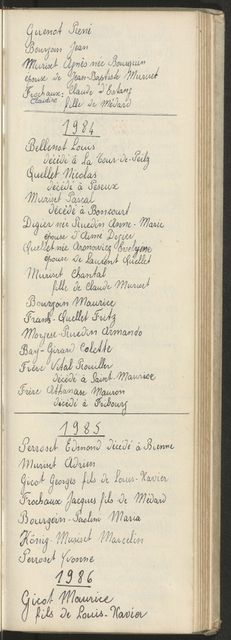 Guenot René
Bourgoin Jean
Muriset Agnès née Bourguin
épouse de Jean-Baptiste Muriset
Frochaux Claude d'Estang
Claudine fille de Médard
1984
Bellenot Louis
décédé à La Tour-de-Peilz
Quellet Nicolas
décédé à Peseux
Muriset Pascal
décédé à Boncourt
Digier née Ruedin Anne-Marie
épouse d'Aimé Digier
Quellet née Aronovici
épouse de Laurent Quellet
Muriset Chantal
fille de Claude Muriset
Bourgoin Maurice
Frank-Quellet Fritz
Ruedin Armando
Bay-Girard Colette
Frère Vital Rouiller
décédé à Saint-Maurice
Frère Athanase Mauron
décédé à Fribourg
1985
Perroset Edmond décédé à Bienne
Muriset Adrien
Gicot Georges fils de Louis-Xavier
Frochaux Jacques fils de Médard
Bourgoin-Paolini Maria
König-Muriset Marcelin
Perroset Yvonne
1986
Gicot Maurice
fils de Louis-Xavier